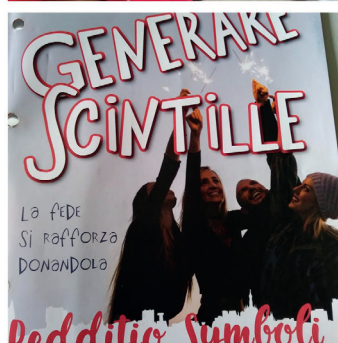 GENERARE
SCINTILLE
LA FEDE
SI RAFFORZA
DONANDOLA
Redditio Symboli